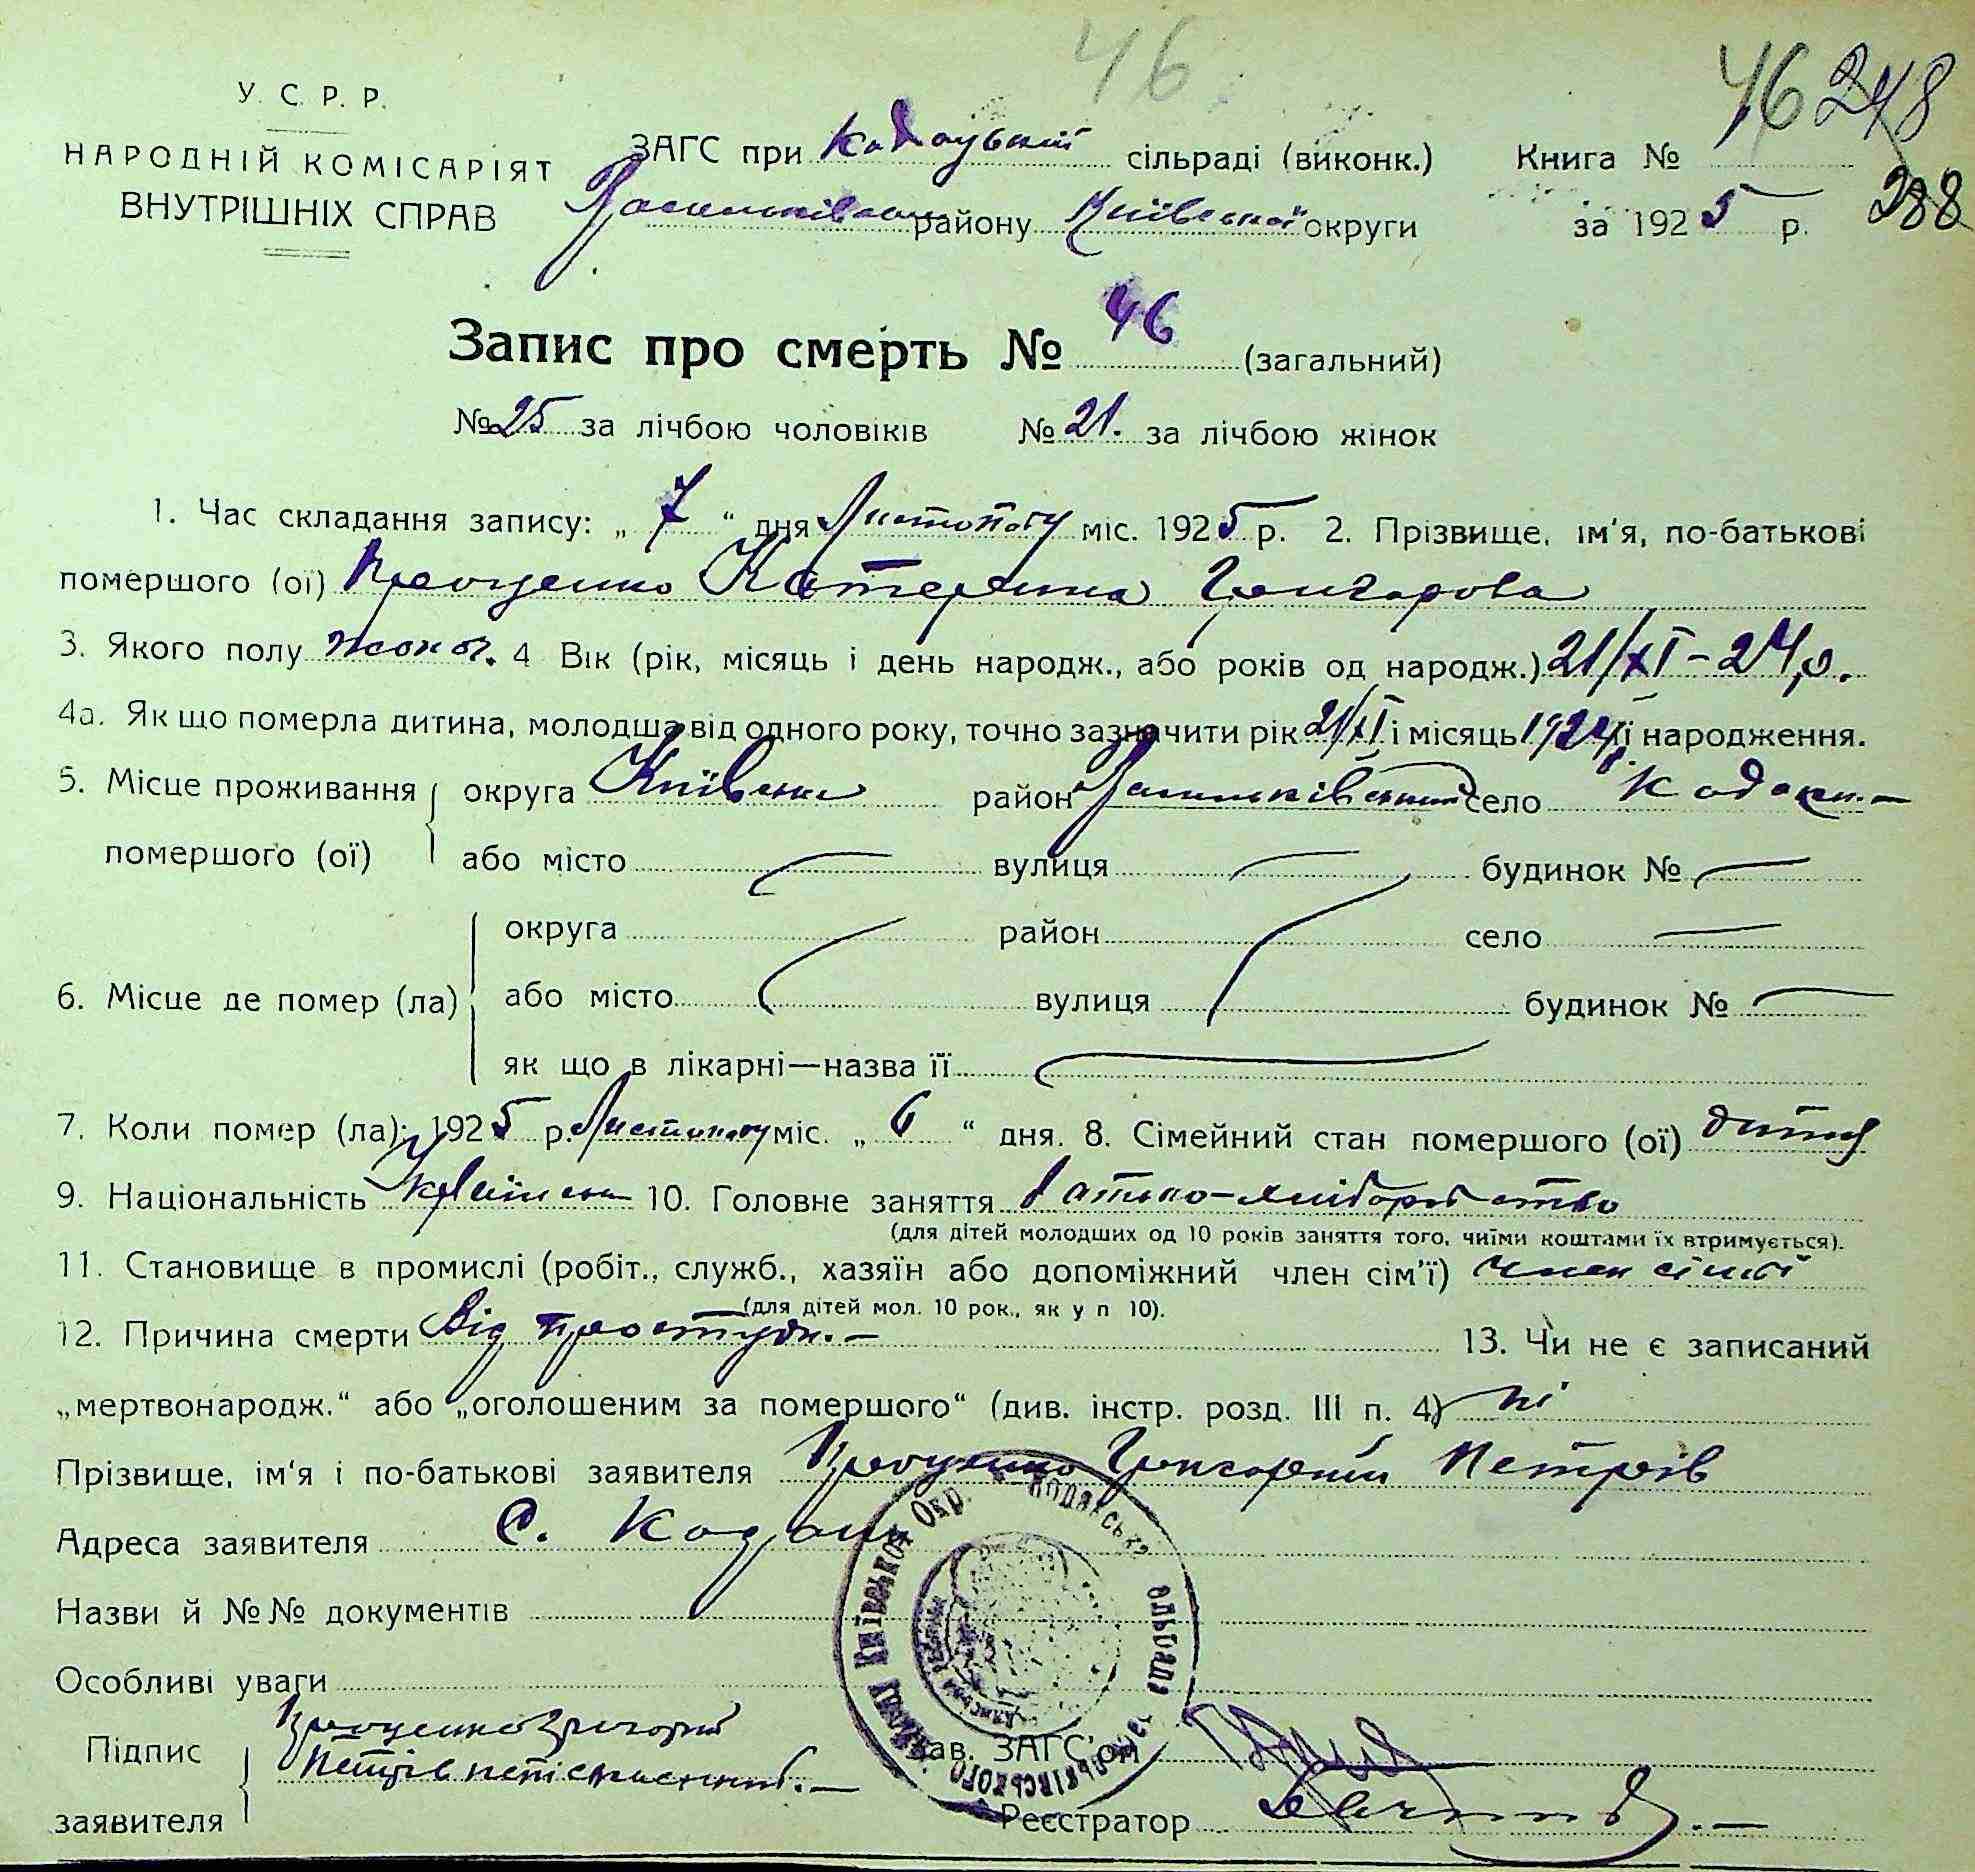 46
46 248
У. С. Р. Р.
НАРОДНІЙ КОМІСАРІЯТ
ВНУТРІШНІХ СПРАВ
ЗАГС при Кодацькій сільраді (виконк.) Книга №
Васильківськ району Київської округи за 1925 р. 288
Запис про смерть № 46 (загальний)
№ 25 за лічбою чоловіків № 21. за лічбою жінок
1. Час складання запису: „ 7 “ дня Листопаду міс. 1925 р. 2. Прізвище, ім'я, по-батькові
помершого (ої) Проценко Катерина Григорова
3. Якого полу жоноч. 4 Вік (рік, місяць і день народж., або років од народж.) 21/XI-24 р.
4а. Як що померла дитина, молодша від одного року, точно зазначити рік 21/XI і місяць 1924 її народження.
5. Місце проживання округа Київська район Васильківський село Кодаки.—
помершого (ої) або місто вулиця будинок №
округа район село
6. Місце де помер (ла) або місто вулиця будинок №
як що в лікарні—назва її
7. Коли помер (ла): 1925 р. Листопаду міс. „ 6 “ дня. 8. Сімейний стан помершого (ої) дитя
9. Національність Українськ 10. Головне заняття батько-хліборобство
(для дітей молодших од 10 років заняття того, чиїми коштами їх втримується).
11. Становище в промислі (робіт., служб., хазяїн або допоміжний член сім'ї) член сімї
(для дітей мол. 10 рок., як у п 10).
12. Причина смерти Від простуди.— 13. Чи не є записаний
„мертвонародж.“ або „оголошеним за помершого“ (див. інстр. розд. III п. 4) ні
Прізвище, ім'я і по-батькові заявителя Проценко Григорій Петрів
Адреса заявителя с. Кодаки
Назви й №№ документів
Особливі уваги
Підпис Проценко Григорій
заявителя Петрів неписьменний.—
Зав. ЗАГС'ом
Реєстратор